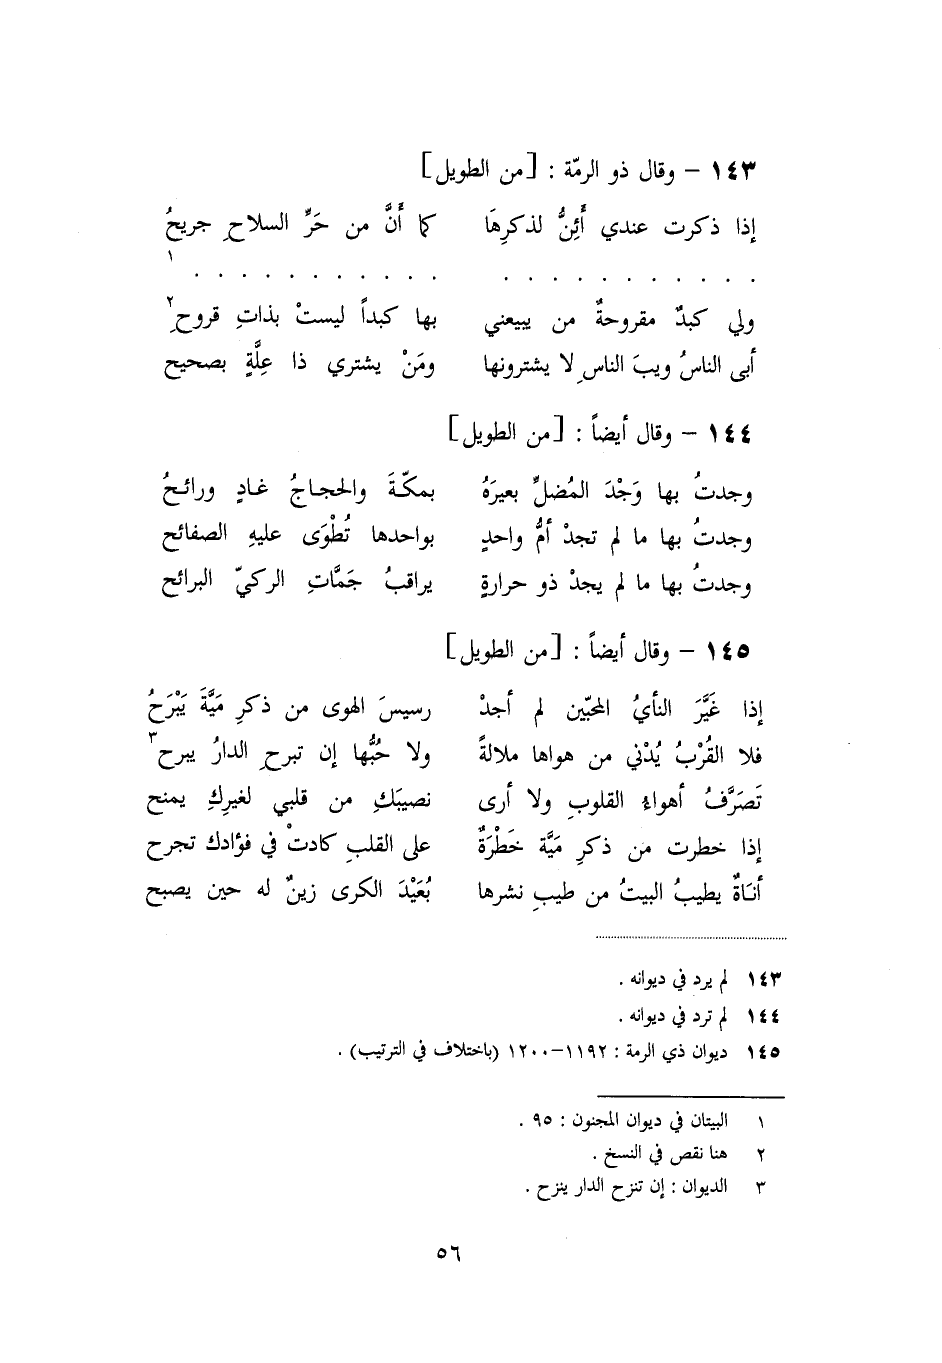 ١٤٣ – وقال ذو الرمّة : [من الطويل]
إذا ذكرت عندي أَئِنُّ لذكرِهَا كما أَنَّ من حَرِّ السلاحِ جريحُ
. . . . . . . . . . . . . . . . . . . . . . ١
ولي كبدٌ مقروحةٌ من يبيعني بها كبداً ليستْ بذاتِ قروحِ٢
أبى الناسُ ويبَ الناسِ لا يشترونها ومَنْ يشتري ذا عِلَّةٍ بصحيح
١٤٤ – وقال أيضاً : [من الطويل]
وجدتُ بها وَجْدَ المُضلِّ بعيرَهُ بمكّةَ والحجاجُ غادٍ ورائحُ
وجدتُ بها ما لم تجدْ أمُّ واحدٍ بواحدها تُطْوَى عليهِ الصفائح
وجدتُ بها ما لم يجدْ ذو حرارةٍ يراقبُ جَمَّاتِ الركيّ البرائح
١٤٥ – وقال أيضاً : [من الطويل]
إذا غَيَّرَ النأيُ المحبّين لم أجدْ رسيسَ الهوى من ذكرِ مَيَّةَ يَبْرَحُ
فلا القُرْبُ يُدْني من هواها ملالةً ولا حُبُّها إن تبرحِ الدارُ يبرح٣
تَصَرَّفُ أهواءُ القلوبِ ولا أرى نصيبَكِ من قلبي لغيرِكِ يمنح
إذا خطرت من ذكرِ مَيَّة خَطْرَةٌ على القلبِ كادتْ في فؤادك تجرح
أنَاةٌ يطيبُ البيتُ من طيبِ نشرها بُعَيْدَ الكرى زينٌ له حين يصبح
١٤٣ لم يرد في ديوانه .
١٤٤ لم ترد في ديوانه .
١٤٥ ديوان ذي الرمة : ١١٩٢–١٢٠٠ (باختلاف في الترتيب) .
١ البيتان في ديوان المجنون : ٩٥ .
٢ هنا نقص في النسخ .
٣ الديوان : إن تنزح الدار ينزح .
٥٦